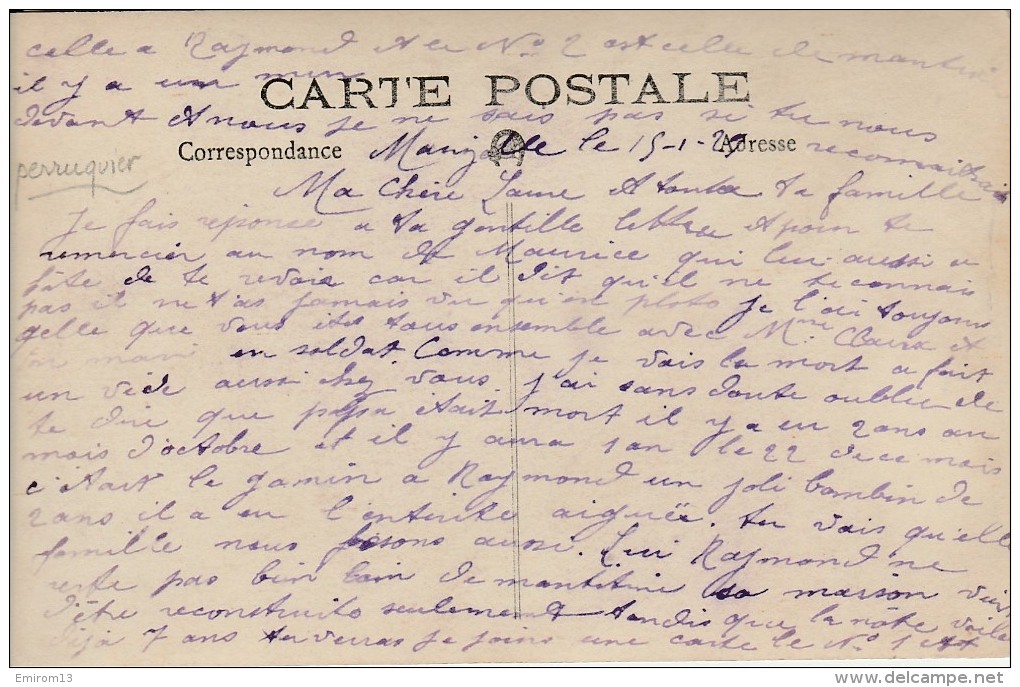 celle a Raymond et le No 2 est celle de
il y a un mur
CARTE POSTALE
devant et nous je ne sais pas si tu nous
reconnaitrais
perruquier
Correspondance
Adresse
le 15-1-29
Ma Chère Laure et toute ta famille
Je fais réponse a ta gentille lettre et pour te
remercier au nom de Maurice qui lui aussi a
hâte de te revoir car il dit qu'il ne te connais
pas il ne t'as jamais vu qu'en photo je l'ai toujours
celle que vous êtes tous ensemble avec Mme Claire et
mari en soldat. Comme je vois la mort a fait
un vide aussi chez vous. j'ai sans doute oublié de
te dire que papa était mort il y a eu 2 ans au
mois d'octobre et il y aura 1 an le 22 de ce mois
c'était le gamin a Raymond un joli bambin de
2 ans il a eu l'entérite aiguë. tu vois qu'elle
famille nous fesons aussi. Lui Raymond ne
reste pas bien loin de sa maison vien
d'être reconstruite seulement tandis que la nôtre voila
déjà 7 ans tu verras je joins une carte le No 1 est
Emirom13
delcampe.net